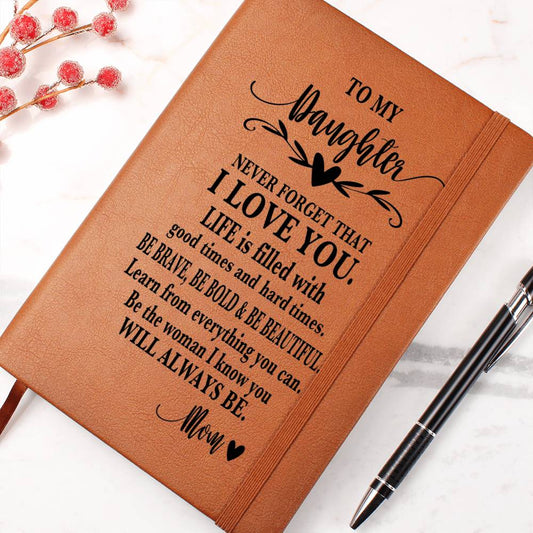 TO MY
Daughter
NEVER FORGET THAT
I LOVE YOU.
LIFE is filled with
good times and hard times.
BE BRAVE, BE BOLD & BE BEAUTIFUL.
Learn from everything you can.
Be the woman I know you
WILL ALWAYS BE.
Mom